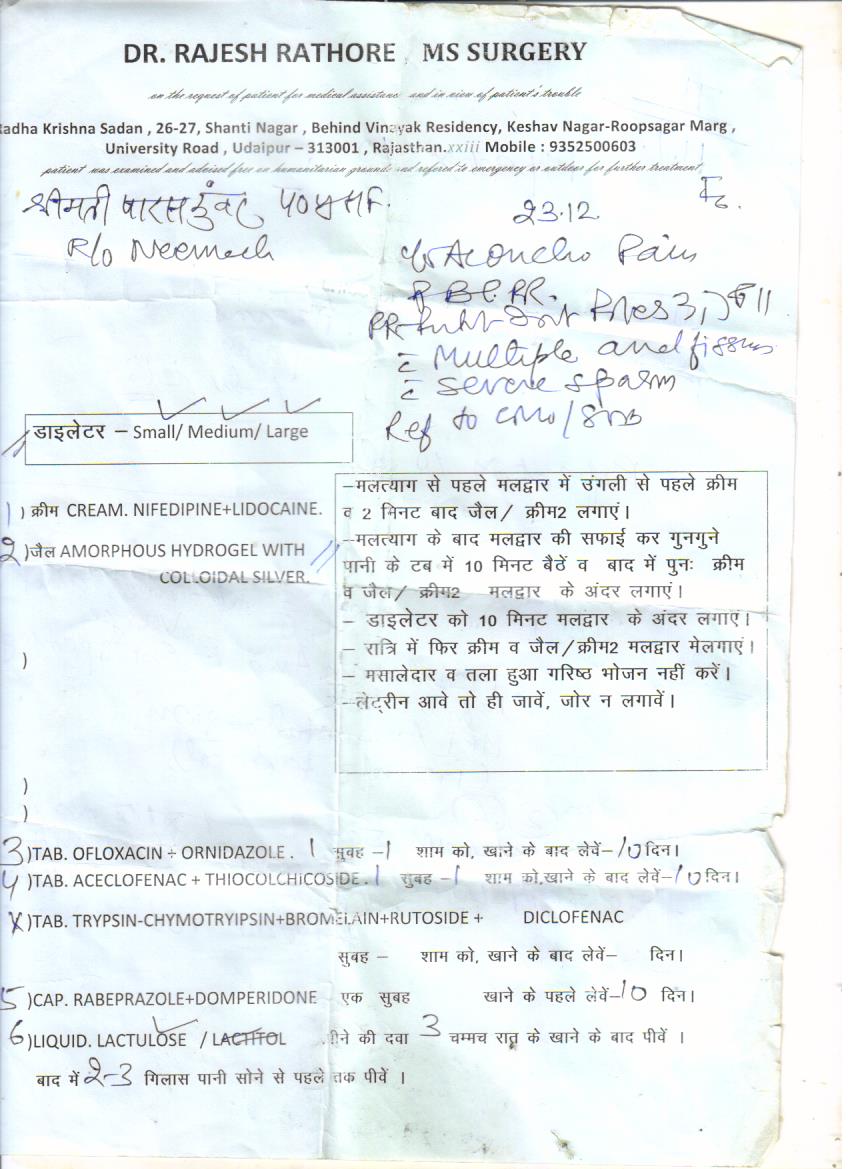 DR. RAJESH RATHORE , MS SURGERY
on the request of patient for medical assistance and in view of patient's trouble
adha Krishna Sadan , 26-27, Shanti Nagar , Behind Vinayak Residency, Keshav Nagar-Roopsagar Marg ,
University Road , Udaipur – 313001 , Rajasthan.xxiii Mobile : 9352500603
patient was examined and advised free on humanitarian grounds and refered to emergency or outdoor for further treatment
श्रीमती पारस कुंवर
23.12.
R/o Neemach
Pain
Piles 3,
PR-
Multiple and fissures
Severe spasm
Ref to
डाइलेटर – Small/ Medium/ Large
1 ) क्रीम CREAM. NIFEDIPINE+LIDOCAINE.
2 )जैल AMORPHOUS HYDROGEL WITH
COLLOIDAL SILVER.
)
)
)
–मलत्याग से पहले मलद्वार में उंगली से पहले क्रीम
व 2 मिनट बाद जैल/ क्रीम2 लगाएं।
–मलत्याग के बाद मलद्वार की सफाई कर गुनगुने
पानी के टब में 10 मिनट बैठें व बाद में पुनः क्रीम
व जैल/ क्रीम2 मलद्वार के अंदर लगाएं।
– डाइलेटर को 10 मिनट मलद्वार के अंदर लगाएं।
– रात्रि में फिर क्रीम व जैल/क्रीम2 मलद्वार मेलगाएं।
– मसालेदार व तला हुआ गरिष्ठ भोजन नहीं करें।
–लेट्रीन आवे तो ही जावें, जोर न लगावें।
3 )TAB. OFLOXACIN + ORNIDAZOLE . 1 सुबह –1 शाम को, खाने के बाद लेवें–10 दिन।
4 )TAB. ACECLOFENAC + THIOCOLCHICOSIDE . 1 सुबह –1 शाम को,खाने के बाद लेवें–10 दिन।
X )TAB. TRYPSIN-CHYMOTRYIPSIN+BROMELAIN+RUTOSIDE + DICLOFENAC
सुबह – शाम को, खाने के बाद लेवें– दिन।
5 )CAP. RABEPRAZOLE+DOMPERIDONE एक सुबह खाने के पहले लेवें–10 दिन।
6 )LIQUID. LACTULOSE / LACTITOL ीने की दवा 3 चम्मच रात्र के खाने के बाद पीवें ।
बाद में 2-3 गिलास पानी सोने से पहले तक पीवें ।